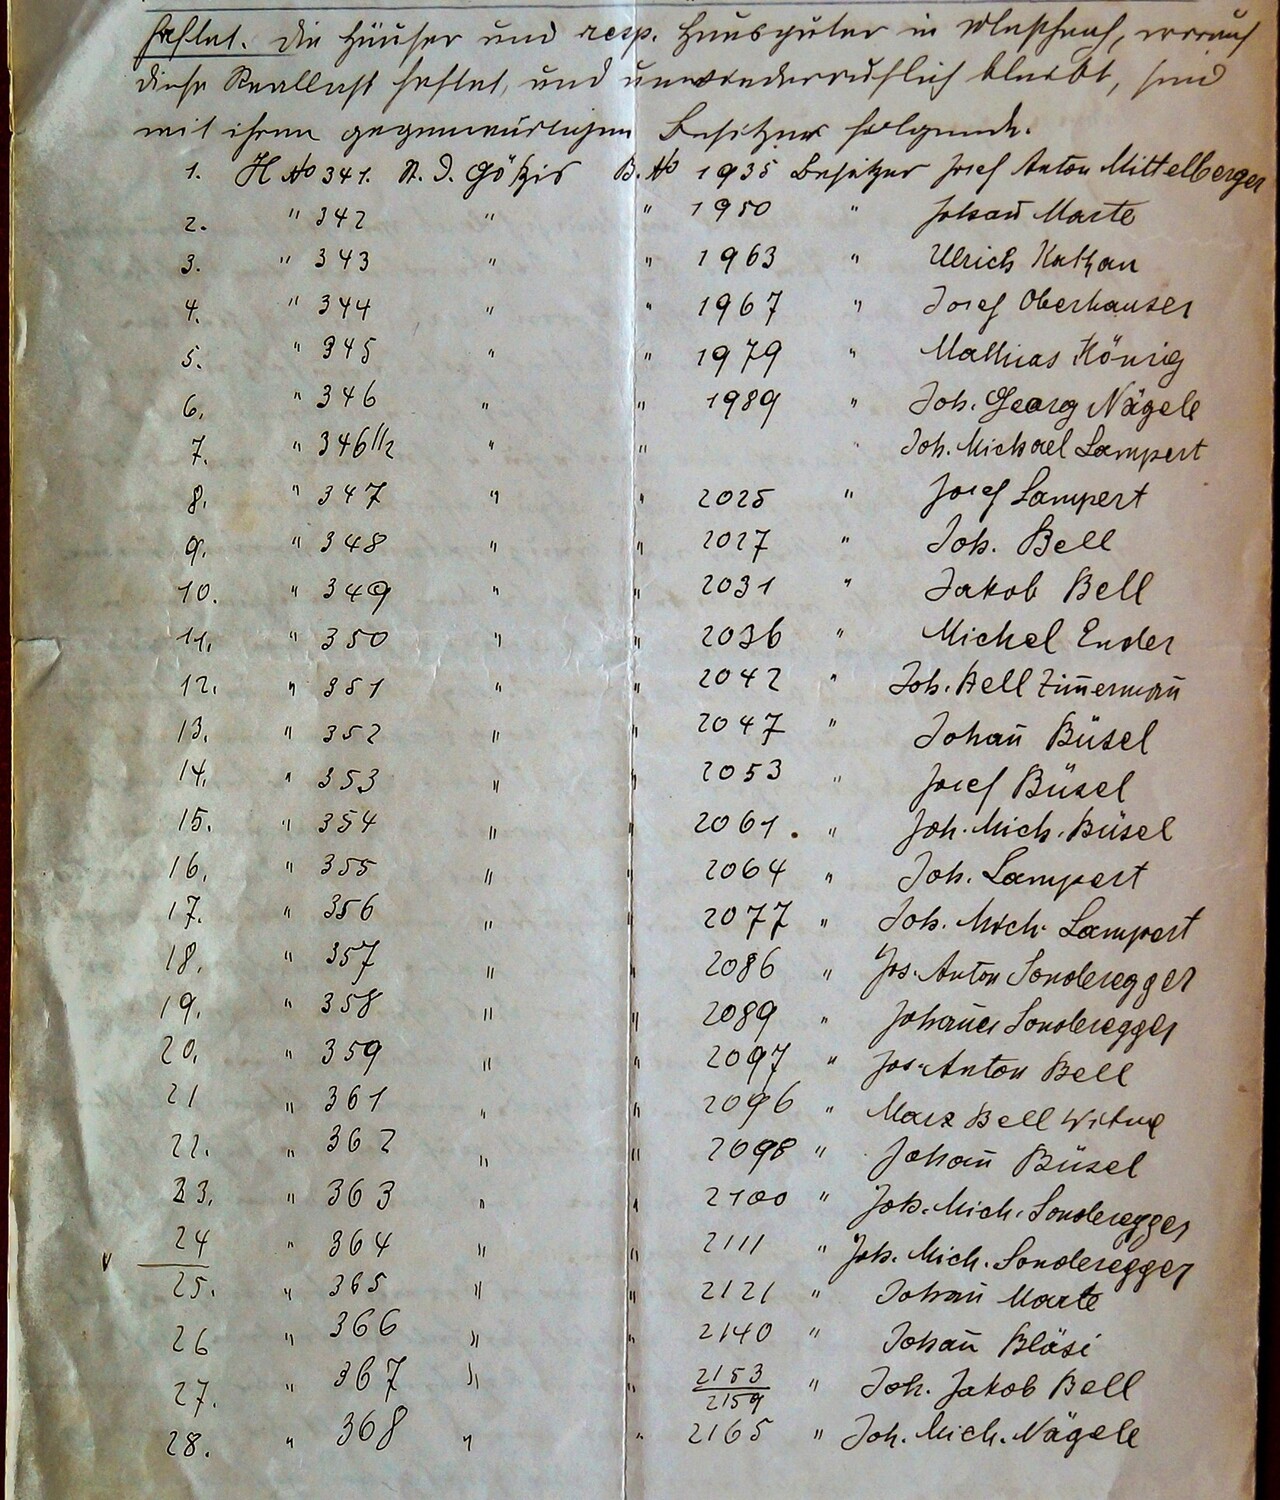 haftet. Die Häuser und resp. Hausgüter in Meschach, worauf
diese Reallast haftet, und unwiederruflich bleibt, sind
mit ihren gegenwärtigen Besitzer folgende.
1. H No 341. St. D. Götzis B. No 1935 Besitzer Josef Anton Mittelberger
2. " 342 " " 1950 " Johañ Marte
3. " 343 " " 1963 " Ulrich Kathan
4. " 344 " " 1967 " Josef Oberhauser
5. " 345 " " 1979 " Mathias König
6. " 346 " " 1989 " Joh. Georg Nägele
7. " 346 1/2 " " " Joh. Michael Lampert
8. " 347 " " 2025 " Josef Lampert
9. " 348 " " 2027 " Joh. Bell
10. " 349 " " 2031 " Jakob Bell
11. " 350 " " 2036 " Michel Ender
12. " 351 " " 2042 " Joh. Bell Zim̄ermañ
13. " 352 " " 2047 " Johañ Büsel
14. " 353 " " 2053 " Josef Büsel
15. " 354 " " 2061. " Joh. Mich. Büsel
16. " 355 " " 2064 " Joh. Lampert
17. " 356 " " 2077 " Joh. Mich. Lampert
18. " 357 " " 2086 " Jos. Anton Sonderegger
19. " 358 " " 2089 " Johañes Sonderegger
20. " 359 " " 2097 " Jos. Anton Bell
21 " 361 " " 2096 " Bell Witwe
22. " 362 " " 2098 " Johañ Büsel
23. " 363 " " 2100 " Joh. Mich. Sonderegger
24 " 364 " " 2111 " Joh. Mich. Sonderegger
25. " 365 " " 2121 " Johañ Marte
26 " 366 " " 2140 " Johañ Bläsi
27. " 367 " " 2153/2159 " Joh. Jakob Bell
28. " 368 " " 2165 " Joh. Mich. Nägele